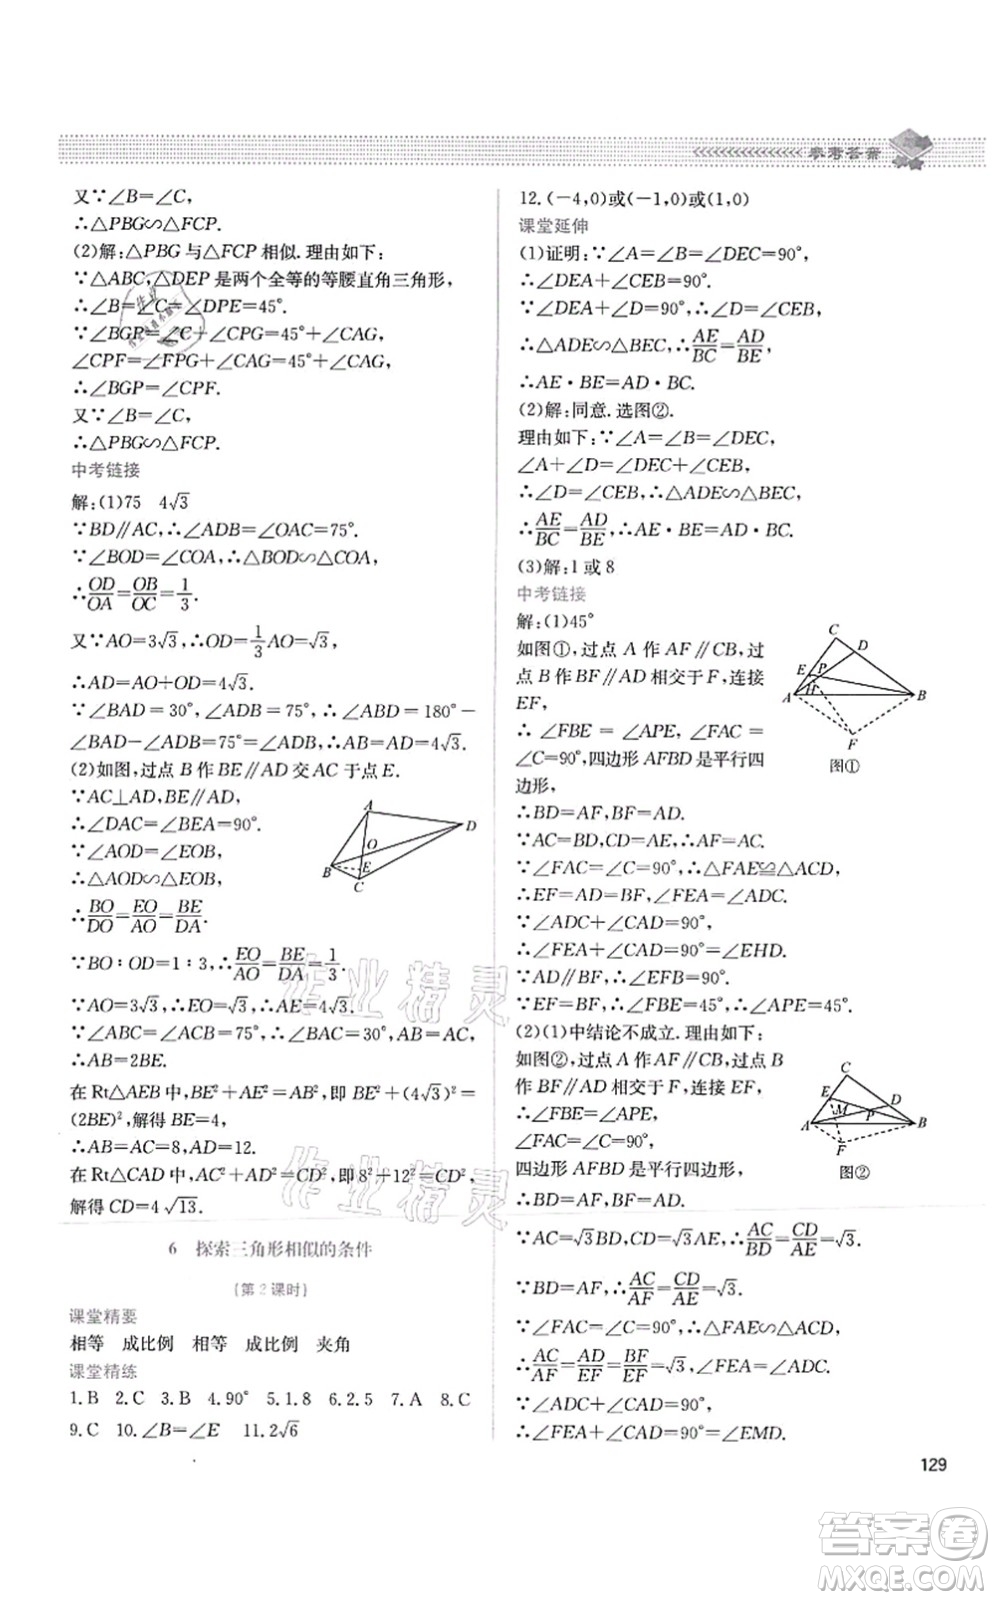 参考答案
又∵∠B=∠C,
∴△PBG∽△FCP.
(2)解:△PBG与△FCP相似.理由如下:
∵△ABC,△DEP是两个全等的等腰直角三角形,
∴∠B=∠C=∠DPE=45°.
∴∠BGP=∠C+∠CPG=45°+∠CAG,
∠CPF=∠FPG+∠CAG=45°+∠CAG.
∴∠BGP=∠CPF.
又∵∠B=∠C,
∴△PBG∽△FCP.
中考链接
解:(1)75 4√3
∵BD∥AC,∴∠ADB=∠OAC=75°.
∵∠BOD=∠COA,∴△BOD∽△COA.
∴OD/OA=OB/OC=1/3.
又∵AO=3√3,∴OD=1/3AO=√3,
∴AD=AO+OD=4√3.
∵∠BAD=30°,∠ADB=75°,∴∠ABD=180°-
∠BAD-∠ADB=75°=∠ADB,∴AB=AD=4√3.
(2)如图,过点B作BE∥AD交AC于点E.
∵AC⊥AD,BE∥AD,
∴∠DAC=∠BEA=90°.
∵∠AOD=∠EOB,
∴△AOD∽△EOB,
∴BO/DO=EO/AO=BE/DA.
∵BO∶OD=1∶3,∴EO/AO=BE/DA=1/3.
∵AO=3√3,∴EO=√3,∴AE=4√3.
∵∠ABC=∠ACB=75°,∴∠BAC=30°,AB=AC,
∴AB=2BE.
在Rt△AEB中,BE²+AE²=AB²,即(4√3)²+BE²=
(2BE)²,解得BE=4,
∴AB=AC=8,AD=12.
在Rt△CAD中,AC²+AD²=CD²,即8²+12²=CD²,
解得CD=4√13.
A
D
O
B
E
C
6 探索三角形相似的条件
(第2课时)
课堂精要
相等 成比例 相等 成比例 夹角
课堂精练
1.B 2.C 3.B 4.90° 5.1.8 6.2.5 7.A 8.C
9.C 10.∠B=∠E 11.2√6
12.(-4,0)或(-1,0)或(1,0)
课堂延伸
(1)证明:∵∠A=∠B=∠DEC=90°,
∴∠DEA+∠CEB=90°.
∵∠DEA+∠D=90°,∴∠D=∠CEB,
∴△ADE∽△BEC,∴AE/BC=AD/BE,
∴AE·BE=AD·BC.
(2)解:同意.选图②.
理由如下:∵∠A=∠B=∠DEC,
∠A+∠D=∠DEC+∠CEB,
∴∠D=∠CEB,∴△ADE∽△BEC,
∴AE/BC=AD/BE,∴AE·BE=AD·BC.
(3)解:1或8
中考链接
解:(1)45°
如图①,过点A作AF∥CB,过
点B作BF∥AD相交于F,连接
EF,
∴∠FBE=∠APE,∠FAC=
∠C=90°,四边形AFBD是平行四
边形,
∴BD=AF,BF=AD.
∵AC=BD,CD=AE,∴AF=AC.
∵∠FAC=∠C=90°,∴△FAE≌△ACD,
∴EF=AD=BF,∠FEA=∠ADC.
∵∠ADC+∠CAD=90°,
∴∠FEA+∠CAD=90°=∠EHD.
∵AD∥BF,∴∠EFB=90°.
∵EF=BF,∴∠FBE=45°,∴∠APE=45°.
(2)(1)中结论不成立.理由如下:
如图②,过点A作AF∥CB,过点B
作BF∥AD相交于F,连接EF,
∴∠FBE=∠APE,
∠FAC=∠C=90°,
四边形AFBD是平行四边形,
∴BD=AF,BF=AD.
∵AC=√3BD,CD=√3AE,∴AC/BD=CD/AE=√3.
∵BD=AF,∴AC/AF=CD/AE=√3.
∵∠FAC=∠C=90°,∴△FAE∽△ACD,
∴AC/AF=AD/EF=BF/EF=√3,∠FEA=∠ADC.
∵∠ADC+∠CAD=90°,
∴∠FEA+∠CAD=90°=∠EMD.
C
D
E
P
H
A
B
F
图①
C
E
M
D
P
A
B
F
图②
129
作业精灵
作业精灵
答案圈
MXQE.COM